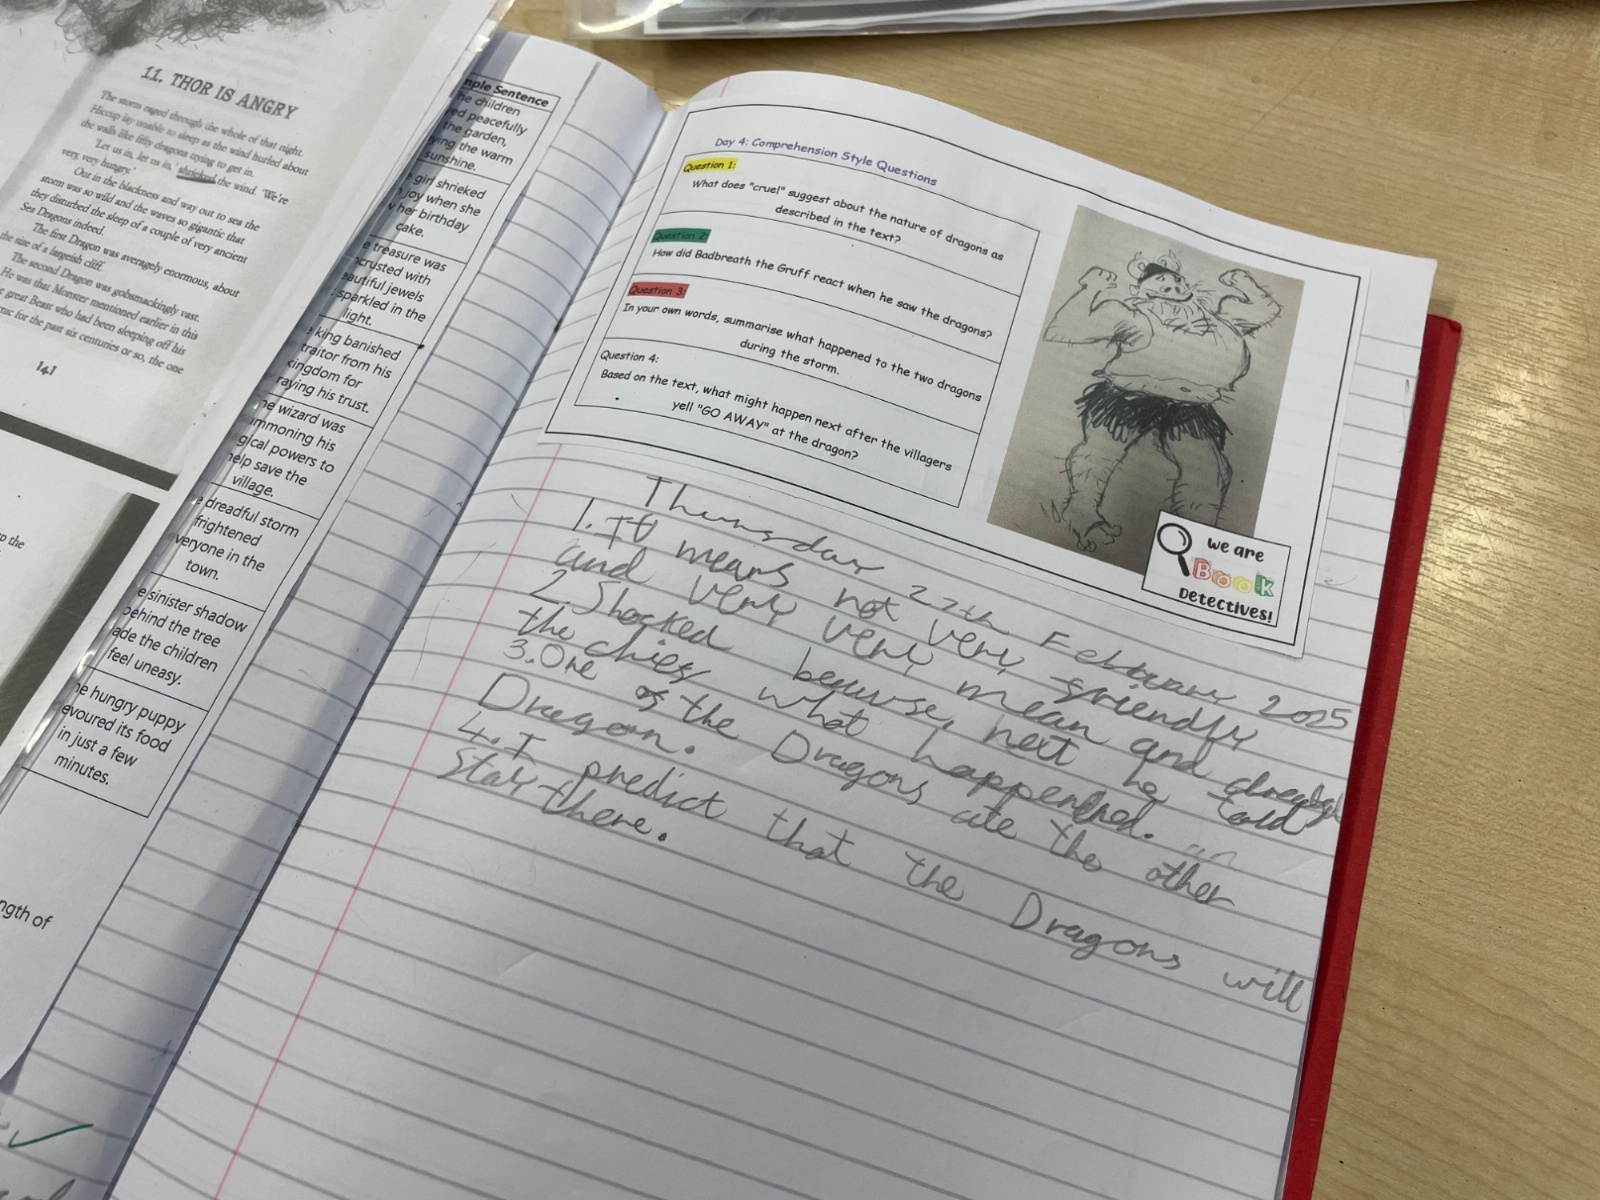 11. THOR IS ANGRY
The storm raged through the whole of that night.
Hiccup lay unable to sleep as the wind hurled about
the walls like fifty dragons trying to get in.
'Let us in, let us in,' shrieked the wind. 'We're
very, very hungry.'
Out in the blackness and way out to sea the
storm was so wild and the waves so gigantic that
they disturbed the sleep of a couple of very ancient
Sea Dragons indeed.
The first Dragon was averagely enormous, about
the size of a largeish cliff.
The second Dragon was gobsmackingly vast.
He was that Monster mentioned earlier in this
great Beast who had been sleeping off his
nic for the past six centuries or so, the one
141
p the
ngth of
mple Sentence
he children
ed peacefully
the garden,
ying the warm
sunshine.
e girl shrieked
joy when she
her birthday
cake.
e treasure was
ncrusted with
eautiful jewels
sparkled in the
light.
king banished
traitor from his
kingdom for
raying his trust.
he wizard was
mmoning his
gical powers to
help save the
village.
e dreadful storm
frightened
veryone in the
town.
e sinister shadow
behind the tree
ade the children
feel uneasy.
he hungry puppy
evoured its food
in just a few
minutes.
Day 4: Comprehension Style Questions
Question 1:
What does "cruel" suggest about the nature of dragons as
described in the text?
Question 2:
How did Badbreath the Gruff react when he saw the dragons?
Question 3:
In your own words, summarise what happened to the two dragons
during the storm.
Question 4:
Based on the text, what might happen next after the villagers
yell "GO AWAY" at the dragon?
we are
Book
Detectives!
Thursday 27th February 2025
1. It means not very friendly
and very very mean and
2 Shocked because, next he told
the chief what happened.
3. One of the Dragons ate the other
Dragon.
4. I predict that the Dragons will
stay there.